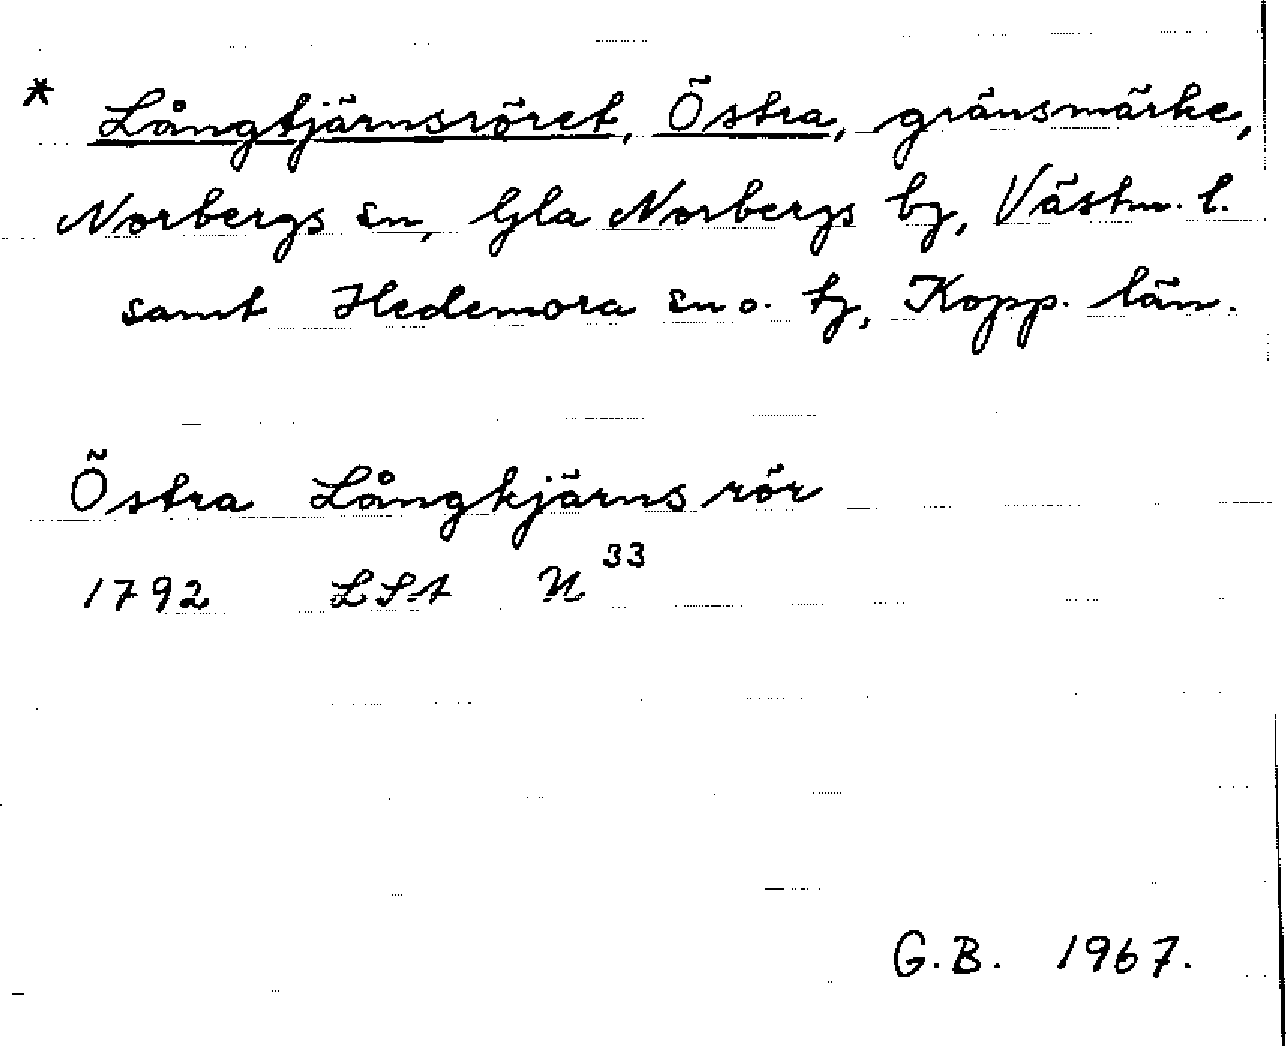 * Långtjärnsröret, Östra, gränsmärke,
Norbergs sn, Gla Norbergs bg, Västm. l.
samt Hedemora sn o. tg, Kopp. län.
Östra Långkjärns rör
1792 LSt U 33
G.B. 1967.